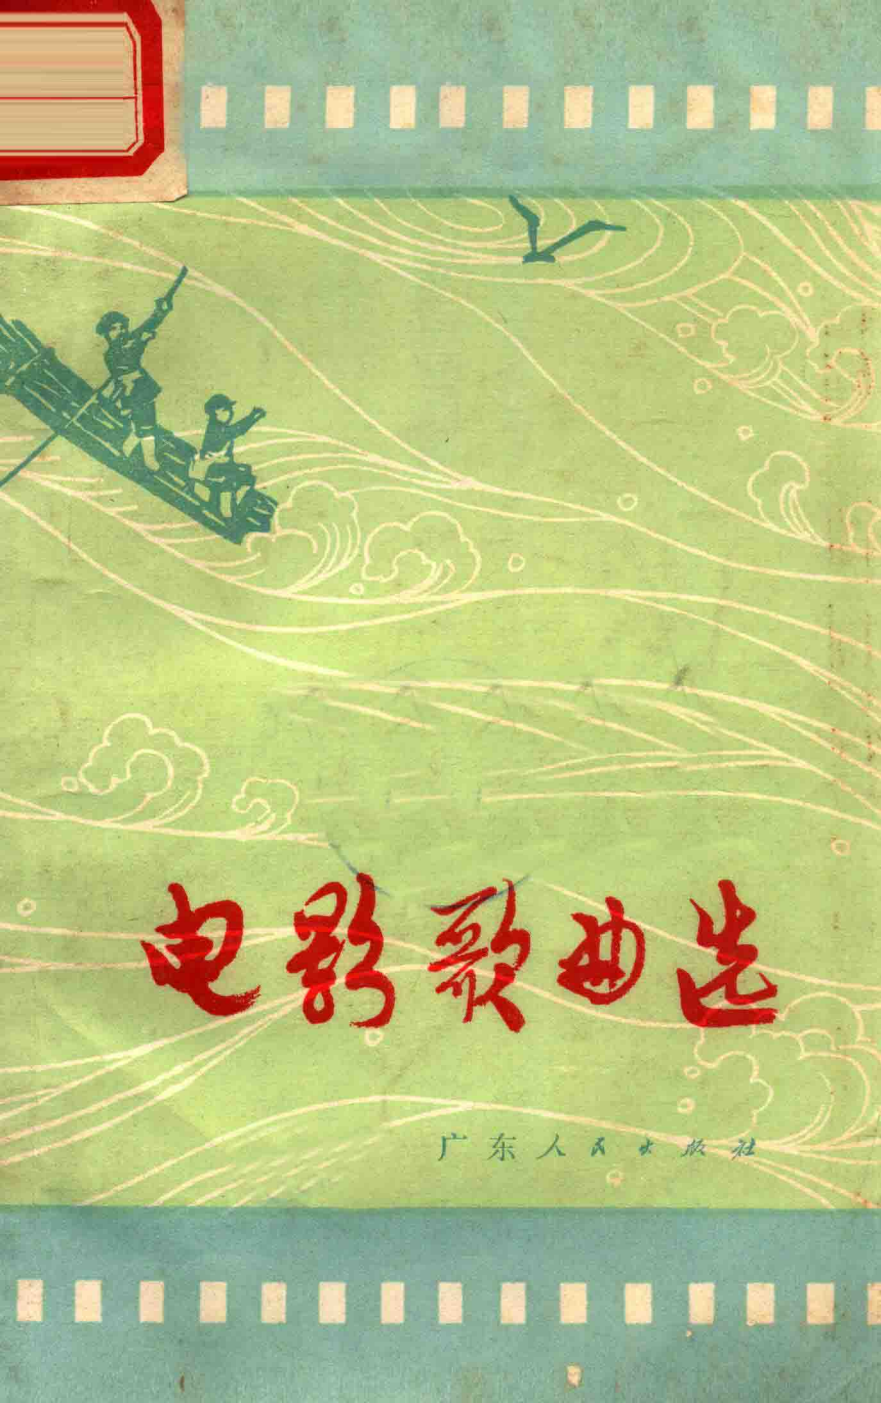 电影歌曲选
广东人民出版社